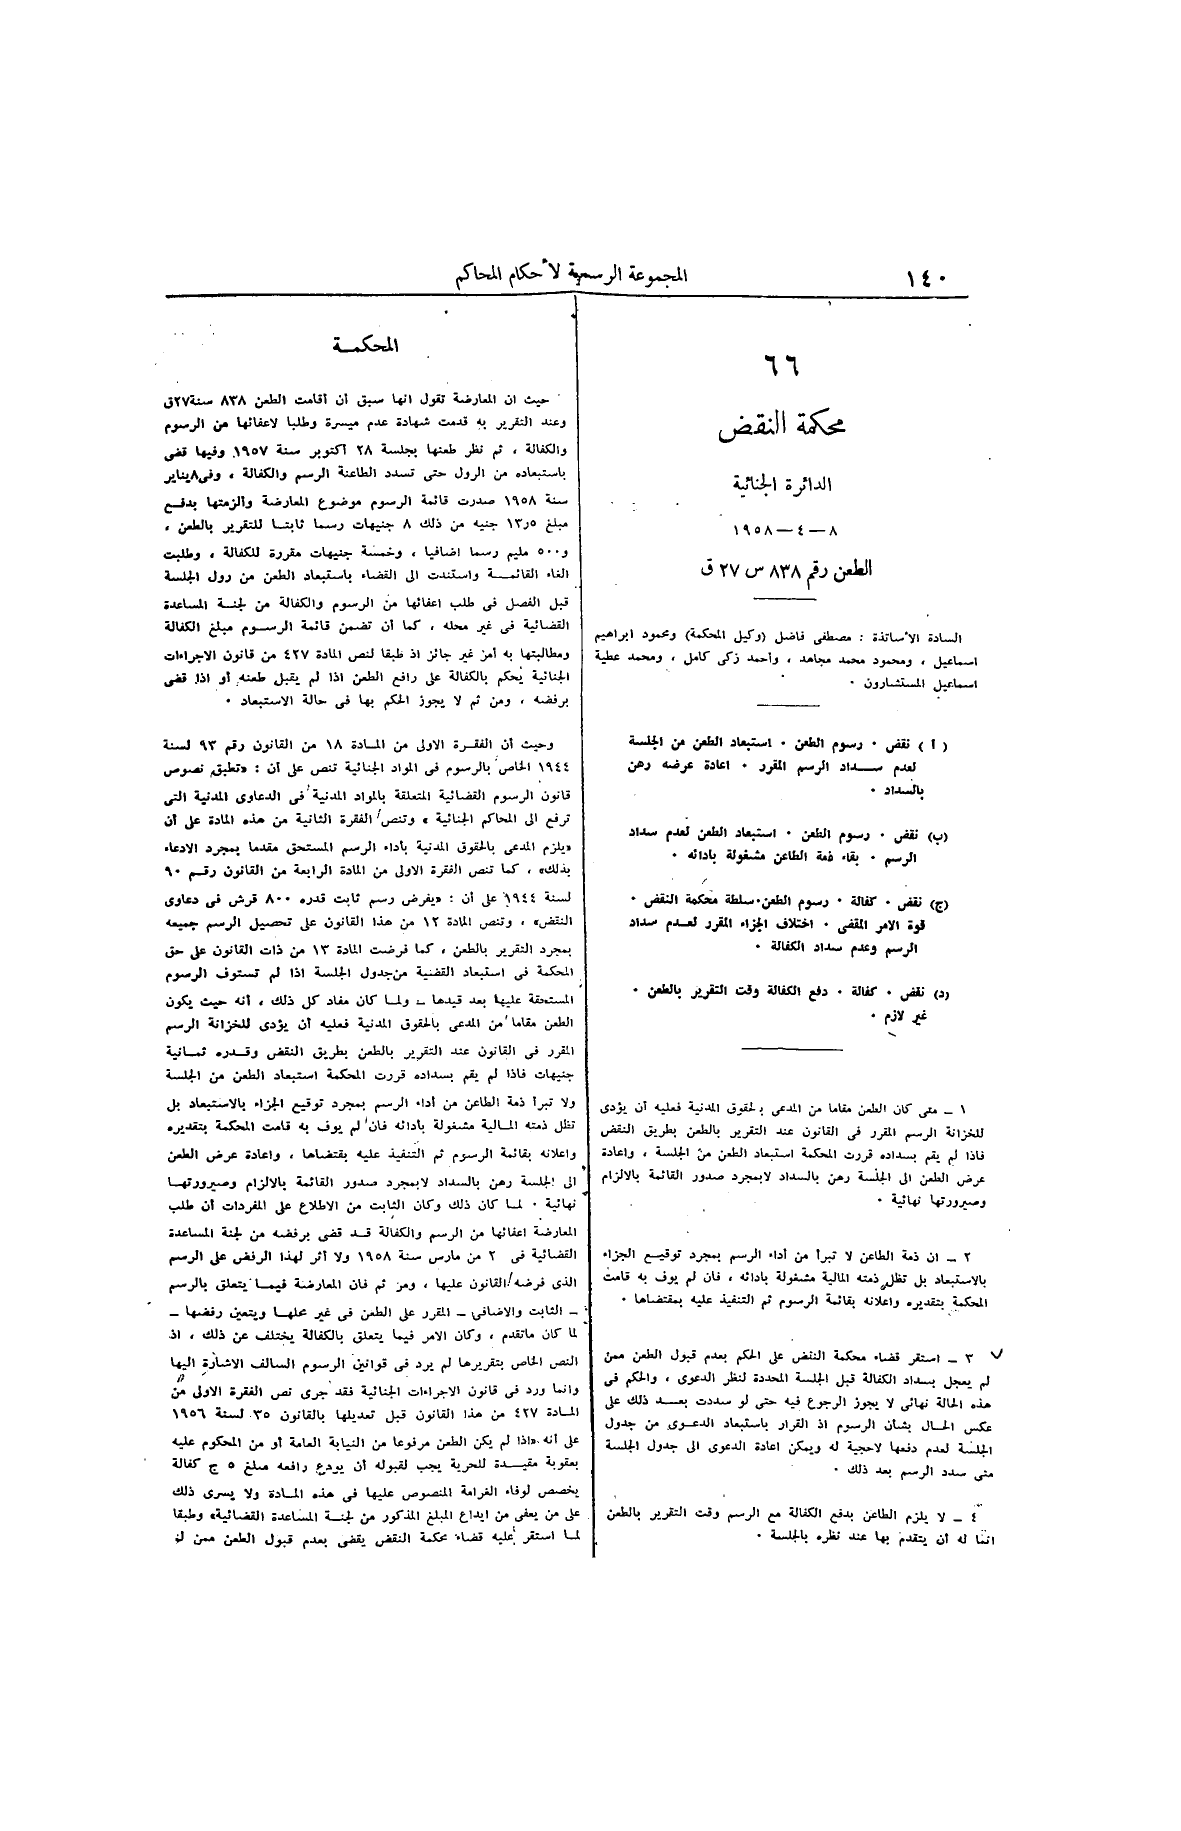 ١٤٠
المجموعة الرسمية لأحكام المحاكم
٦٦
محكمة النقض
الدائرة الجنائية
٨ — ٤ — ١٩٥٨
الطعن رقم ٨٣٨ س ٢٧ ق
السادة الأساتذة : مصطفى فاضل (وكيل المحكمة) ومحمود ابراهيم
اسماعيل ، ومحمود محمد مجاهد ، وأحمد زكى كامل ، ومحمد عطية
اسماعيل المستشارون ٠
( أ ) نقض ٠ رسوم الطعن ٠ استبعاد الطعن من الجلسة
لعدم ســداد الرسم المقرر ٠ اعادة عرضه رهن
بالسداد ٠
(ب) نقض ٠ رسوم الطعن ٠ استبعاد الطعن لعدم سداد
الرسم ٠ بقاء ذمة الطاعن مشغولة بادائه ٠
(ج) نقض ٠ كفالة ٠ رسوم الطعن ٠ سلطة محكمة النقض ٠
قوة الامر المقضى ٠ اختلاف الجزاء المقرر لعـدم سداد
الرسم وعدم سداد الكفالة ٠
(د) نقض ٠ كفالة ٠ دفع الكفالة وقت التقرير بالطعن ٠
غير لازم ٠
١ ـ متى كان الطعن مقاما من المدعى بالحقوق المدنية فعليه أن يؤدى
للخزانة الرسم المقرر فى القانون عند التقرير بالطعن بطريق النقض
فاذا لم يقم بسداده قررت المحكمة استبعاد الطعن من الجلسة ، واعادة
عرض الطعن الى الجلسة رهن بالسداد لابمجرد صدور القائمة بالالزام
وصيرورتها نهائية ٠
٢ ـ ان ذمة الطاعن لا تبرأ من أداء الرسم بمجرد توقيـع الجزاء
بالاستبعاد بل تظل ذمته المالية مشغولة بادائه ، فان لم يوف به قامت
المحكمة بتقديره واعلانه بقائمة الرسوم ثم التنفيذ عليه بمقتضاها ٠
٣ ـ استقر قضاء محكمة النقض على الحكم بعدم قبول الطعن ممن
لم يعجل بسداد الكفالة قبل الجلسة المحددة لنظر الدعوى ، والحكم فى
هذه الحالة نهائى لا يجوز الرجوع فيه حتى لو سددت بعــد ذلك على
عكس الحـال بشأن الرسوم اذ القرار باستبعاد الدعـوى من جدول
الجلسة لعدم دفعها لاحجية له ويمكن اعادة الدعوى الى جدول الجلسة
متى سدد الرسم بعد ذلك ٠
٤ ـ لا يلزم الطاعن بدفع الكفالة مع الرسم وقت التقرير بالطعن
انما له أن يتقدم بها عند نظره بالجلسة ٠
المحكمــة
حيث ان المعارضة تقول انها سبق أن أقامت الطعن ٨٣٨ سنة ٢٧ق
وعند التقرير به قدمت شهادة عدم ميسرة وطلبا لاعفائها من الرسوم
والكفالة ، ثم نظر طعنها بجلسة ٢٨ أكتوبر سنة ١٩٥٧ وفيها قضى
باستبعاده من الرول حتى تسدد الطاعنة الرسم والكفالة ، وفى ٨ يناير
سنة ١٩٥٨ صدرت قائمة الرسوم موضوع المعارضة وألزمتها بدفـع
مبلغ ١٣٫٥ جنيه من ذلك ٨ جنيهات رسما ثابتـا للتقرير بالطعن ،
و٥٠٠ مليم رسما اضافيا ، وخمسة جنيهات مقررة للكفالة ، وطلبت
الغاء القائمــة واستندت الى القضاء باستبعاد الطعن من رول الجلسة
قبل الفصل فى طلب اعفائها من الرسوم والكفالة من لجنة المساعدة
القضائية فى غير محله ، كما أن تضمن قائمة الرســوم مبلغ الكفالة
ومطالبتها به أمر غير جائز اذ طبقا لنص المادة ٤٢٧ من قانون الاجراءات
الجنائية يحكم بالكفالة على رافع الطعن اذا لم يقبل طعنه أو اذا قضى
برفضه ، ومن ثم لا يجوز الحكم بها فى حالة الاستبعاد ٠
وحيث أن الفقـرة الاولى من المـادة ١٨ من القانون رقم ٩٣ لسنة
١٩٤٤ الخاص بالرسوم فى المواد الجنائية تنص على أن : «تطبق نصوص
قانون الرسوم القضائية المتعلقة بالمواد المدنية فى الدعاوى المدنية التى
ترفع الى المحاكم الجنائية » وتنص الفقرة الثانية من هذه المادة على أن
«يلزم المدعى بالحقوق المدنية بأداء الرسم المستحق مقدما بمجرد الادعاء
بذلك» ، كما تنص الفقرة الاولى من المادة الرابعة من القانون رقـم ٩٠
لسنة ١٩٤٤ على أن : «يفرض رسم ثابت قدره ٨٠٠ قرش فى دعاوى
النقض» ، وتنص المادة ١٢ من هذا القانون على تحصيل الرسم جميعه
بمجرد التقرير بالطعن ، كما فرضت المادة ١٣ من ذات القانون على حق
المحكمة فى استبعاد القضية من جدول الجلسة اذا لم تستوف الرسوم
المستحقة عليها بعد قيدها ـ ولمـا كان مفاد كل ذلك ، أنه حيث يكون
الطعن مقاما من المدعى بالحقوق المدنية فعليه أن يؤدى للخزانة الرسم
المقرر فى القانون عند التقرير بالطعن بطريق النقض وقـدره ثمـانية
جنيهات فاذا لم يقم بسداده قررت المحكمة استبعاد الطعن من الجلسة
ولا تبرأ ذمة الطاعن من أداء الرسم بمجرد توقيع الجزاء بالاستبعاد بل
تظل ذمته المـالية مشغولة بادائه فان لم يوف به قامت المحكمة بتقديره
واعلانه بقائمة الرسوم ثم التنفيذ عليه بقتضاها ، واعادة عرض الطعن
الى الجلسة رهن بالسداد لابمجرد صدور القائمة بالالزام وصيرورتهـا
نهائية ٠ لمـا كان ذلك وكان الثابت من الاطلاع على المفردات أن طلب
المعارضة اعفائها من الرسم والكفالة قــد قضى برفضه من لجنة المساعدة
القضائية فى ٢ من مارس سنة ١٩٥٨ ولا أثر لهذا الرفض على الرسم
الذى فرضه القانون عليها ، ومن ثم فان المعارضة فيمـا يتعلق بالرسم
ـ الثابت والاضافى ـ المقرر على الطعن فى غير محلهـا ويتعين رفضهـا ـ
لما كان ماتقدم ، وكان الامر فيما يتعلق بالكفالة يختلف عن ذلك ، اذ
النص الخاص بتقريرها لم يرد فى قوانين الرسوم السالف الاشارة اليها
وانما ورد فى قانون الاجراءات الجنائية فقد جرى نص الفقرة الاولى من
المـادة ٤٢٧ من هذا القانون قبل تعديلها بالقانون ٣٥ لسنة ١٩٥٦
على أنه «اذا لم يكن الطعن مرفوعا من النيابة العامة أو من المحكوم عليه
بعقوبة مقيــدة للحرية يجب لقبوله أن يودع رافعه مبلغ ٥ ج كفالة
يخصص لوفاء الغرامة المنصوص عليها فى هذه المـادة ولا يسرى ذلك
على من يعفى من ايداع المبلغ المذكور من لجنـة المساعدة القضائية» وطبقا
لمـا استقر عليه قضاء محكمة النقض يقضى بعدم قبول الطعن ممن